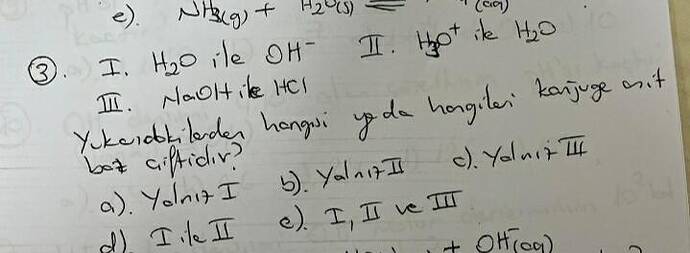 e). NH3(g) + H2O(s) ⇌ (aq)
③. I. H2O ile OH⁻ II. H3O⁺ ile H2O
III. NaOH ile HCl
Yukarıdakilerden hangisi ya da hangileri konjuge asit
baz çiftidir?
a). Yalnız I b). Yalnız II c). Yalnız III
d) I ile II e). I, II ve III
+ OH⁻(aq)